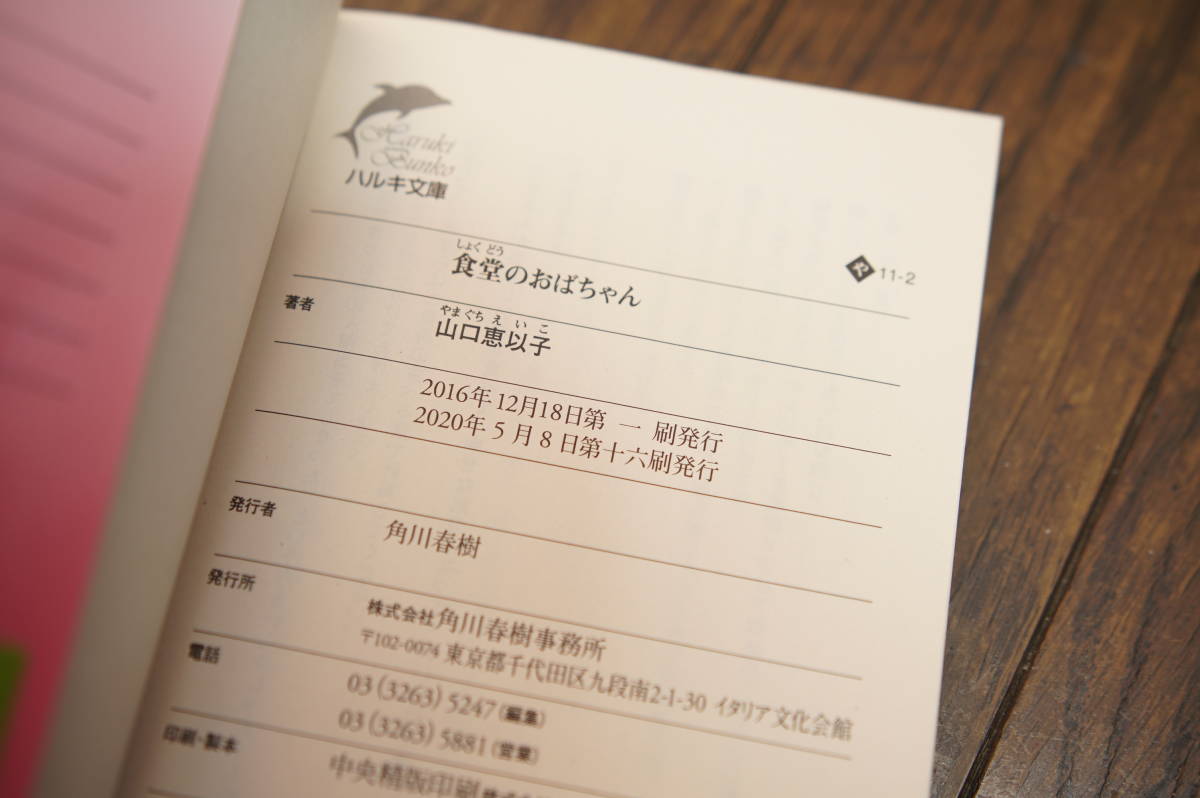 Haruki
Bunko
ハルキ文庫
や 11-2
しょくどう
食堂のおばちゃん
著者
やまぐちえいこ
山口恵以子
2016年12月18日第一刷発行
2020年5月8日第十六刷発行
発行者
角川春樹
発行所
株式会社角川春樹事務所
〒102-0074 東京都千代田区九段南2-1-30 イタリア文化会館
電話
03(3263)5247(編集)
03(3263)5881(営業)
印刷・製本
中央精版印刷株式会